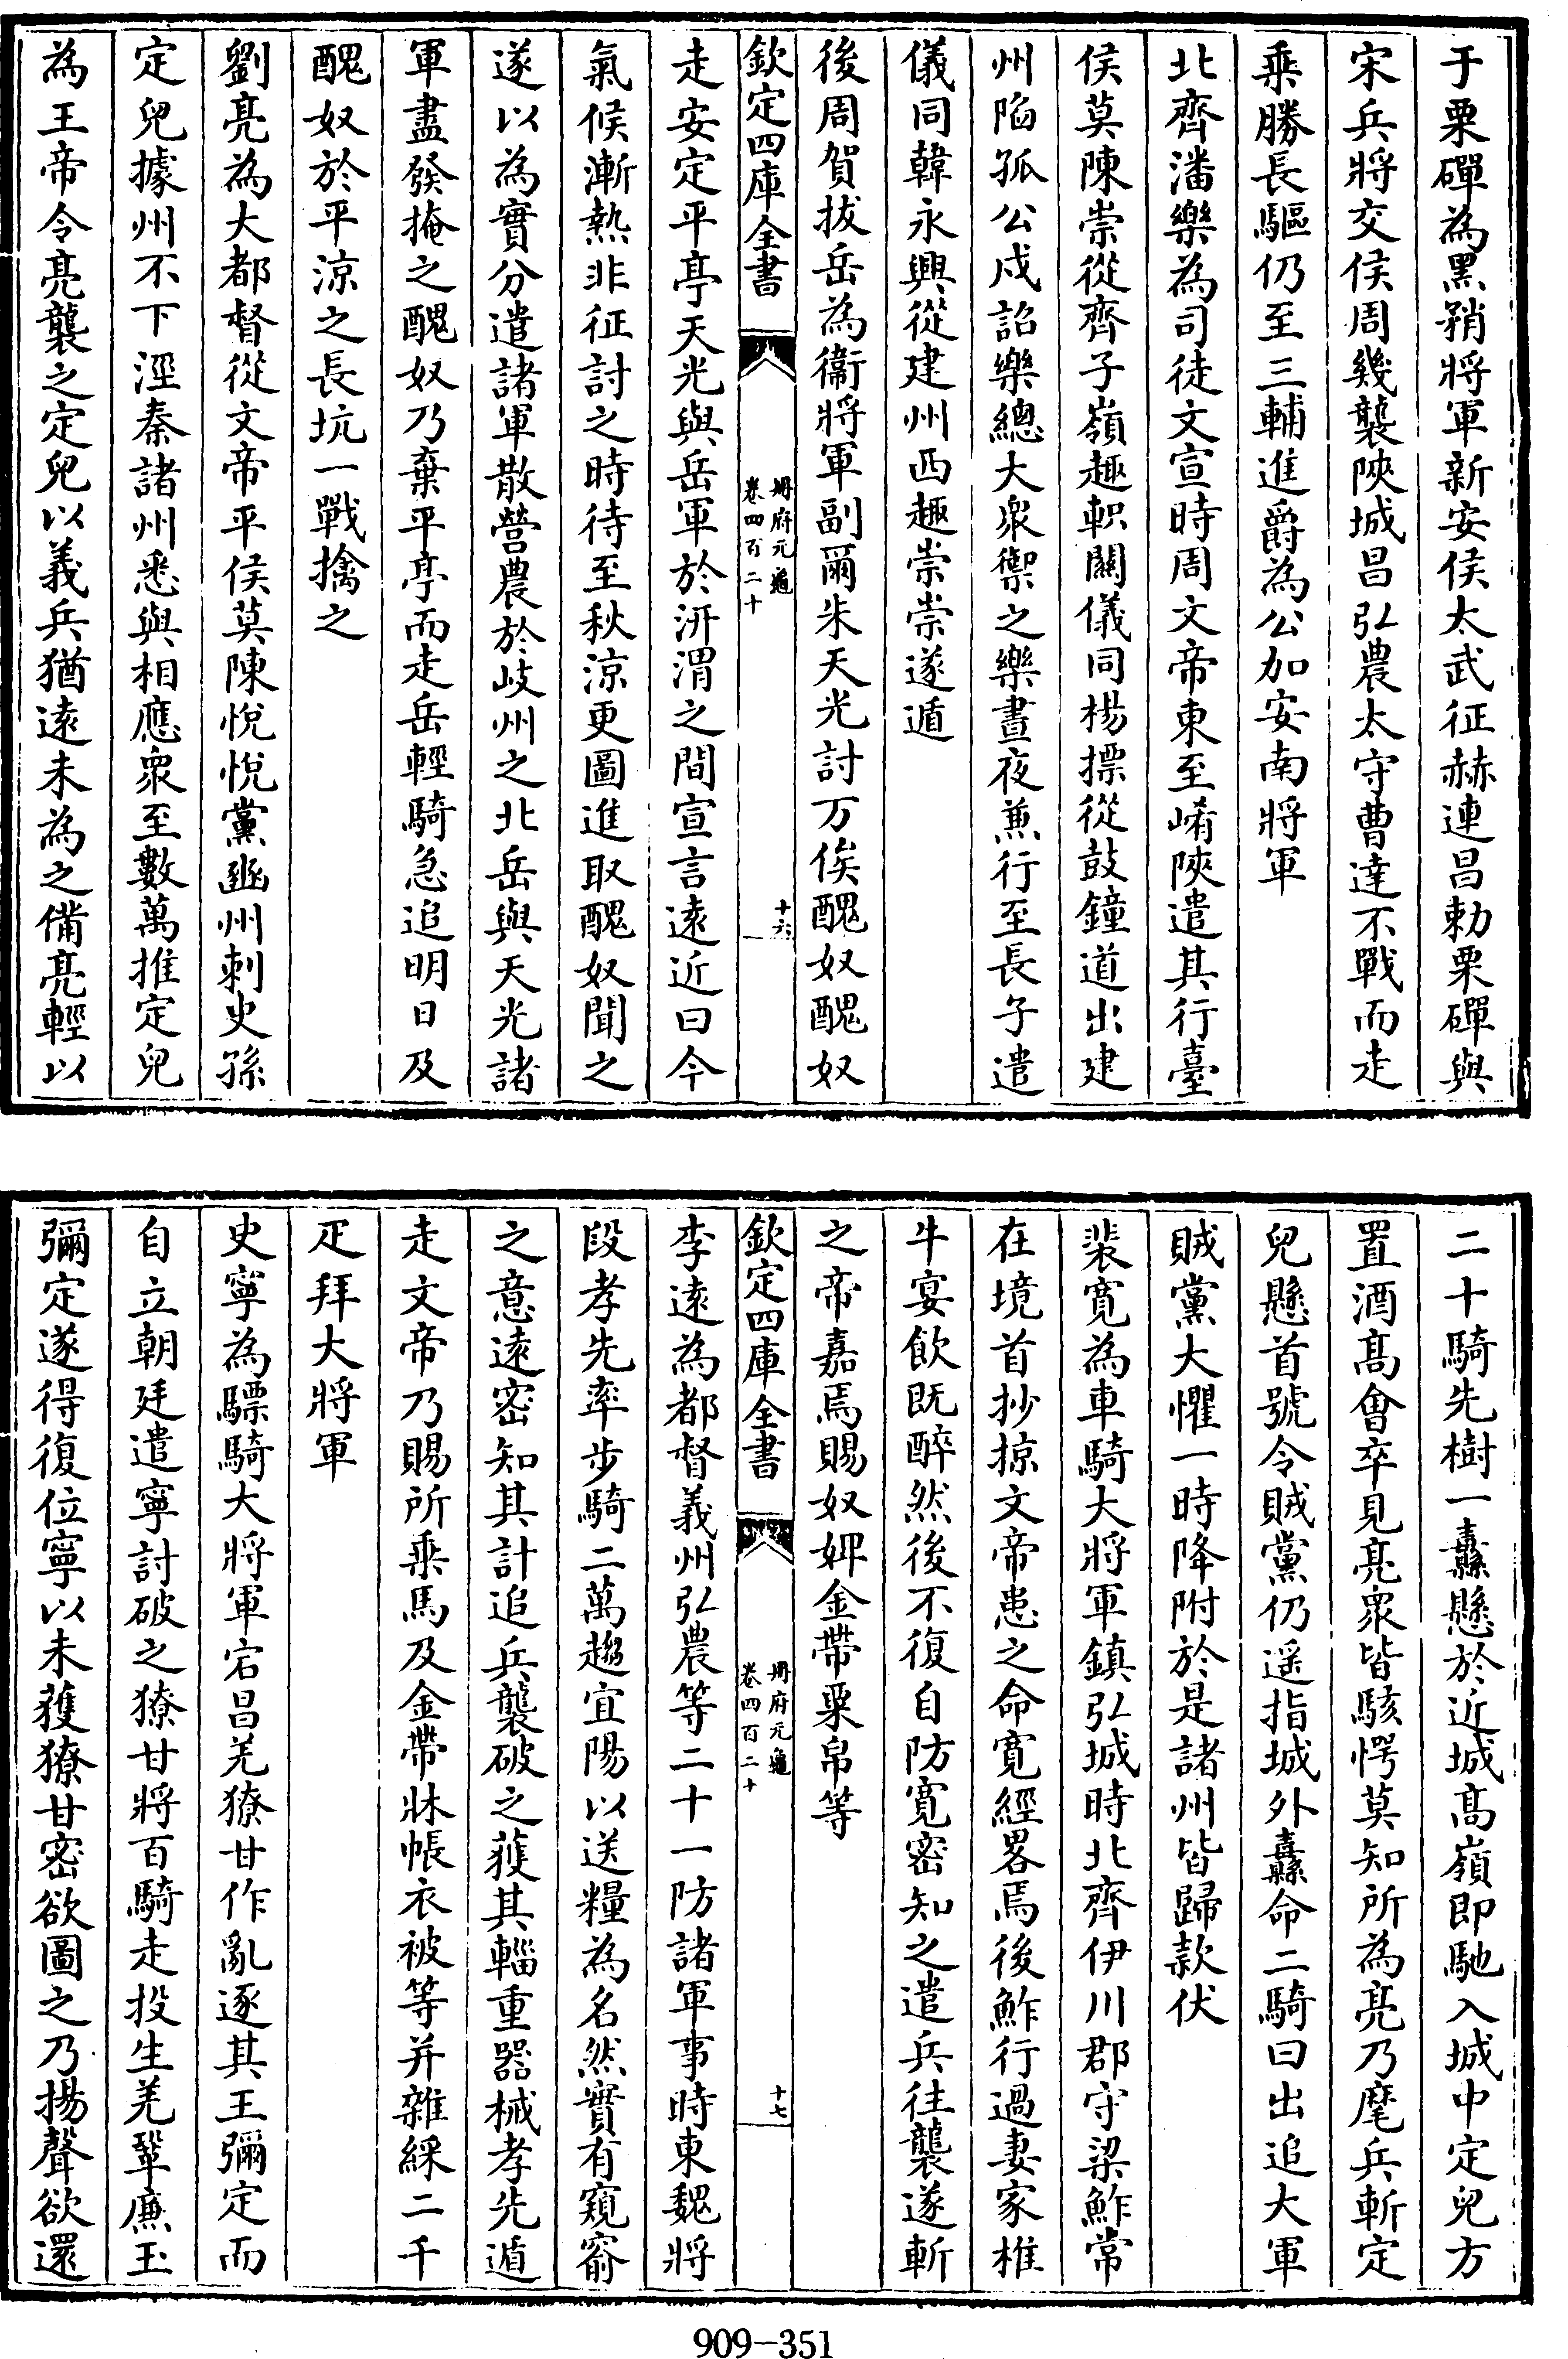 于栗磾為黑矟將軍新安侯太武征赫連昌勅栗磾與
宋兵將交侯周幾襲陜城昌弘農太守曹達不戰而走
乘勝長驅仍至三輔進爵為公加安南將軍
北齊潘樂為司徒文宣時周文帝東至崤陜遣其行臺
侯莫陳崇從齊子嶺趣軹關儀同楊摽從鼓鐘道出建
州陷孤公戍詔樂總大衆禦之樂晝夜兼行至長子遣
儀同韓永興從建州西趣崇崇遂遁
後周賀拔岳為衞將軍副爾朱天光討万俟醜奴醜奴
欽定四庫全書
冊府元龜
卷四百二十
十六
走安定平亭天光與岳軍於汧渭之間宣言遠近曰今
氣候漸熱非征討之時待至秋涼更圖進取醜奴聞之
遂以為實分遣諸軍散營農於岐州之北岳與天光諸
軍盡發掩之醜奴乃棄平亭而走岳輕騎急追明日及
醜奴於平涼之長坑一戰擒之
劉亮為大都督從文帝平侯莫陳悅悅黨豳州刺史孫
定兒據州不下涇秦諸州悉與相應衆至數萬推定兒
為王帝令亮襲之定兒以義兵猶遠未為之備亮輕以
二十騎先樹一纛懸於近城髙嶺即馳入城中定兒方
置酒髙會卒見亮衆皆駭愕莫知所為亮乃麾兵斬定
兒懸首號令賊黨仍遥指城外纛命二騎曰出追大軍
賊黨大懼一時降附於是諸州皆歸款伏
裴寛為車騎大將軍鎮弘城時北齊伊川郡守梁鮓常
在境首抄掠文帝患之命寛經畧焉後鮓行過妻家椎
牛宴飲既醉然後不復自防寛密知之遣兵往襲遂斬
之帝嘉焉賜奴婢金帶粟帛等
欽定四庫全書
冊府元龜
卷四百二十
十七
李遠為都督義州弘農等二十一防諸軍事時東魏將
段孝先率步騎二萬趨宜陽以送糧為名然實有窺窬
之意遠密知其計追兵襲破之獲其輜重器械孝先遁
走文帝乃賜所乘馬及金帶牀帳衣被等并雜綵二千
疋拜大將軍
史寧為驃騎大將軍宕昌羌獠甘作亂逐其王彌定而
自立朝廷遣寧討破之獠甘將百騎走投生羌鞏廉玉
彌定遂得復位寧以未獲獠甘密欲圖之乃揚聲欲還
909-351